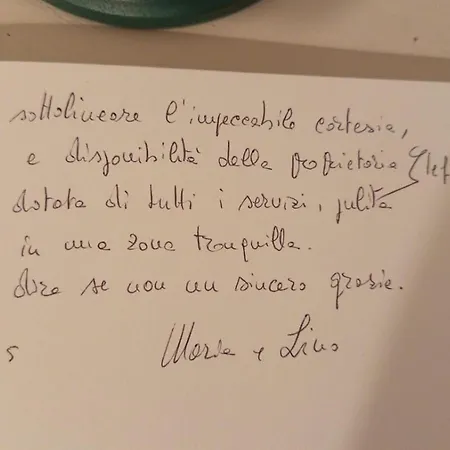 sottolineare l'impeccabile cortesia,
e disponibilità della proprietaria
dotata di tutti i servizi, pulita
in una zona tranquilla.
dire se non un sincero grazie.
e Lino
5